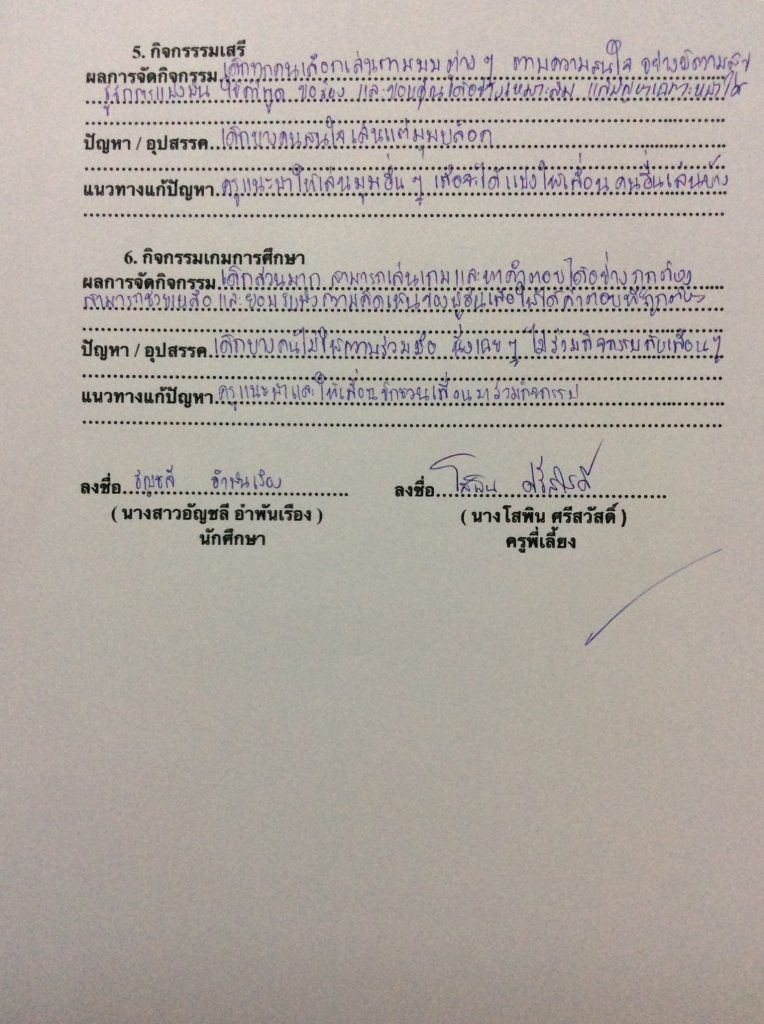 5. กิจกรรรมเสรี
ผลการจัดกิจกรรม เด็กทุกคนเลือกเล่นตามมุมต่าง ๆ ตามความสนใจ อย่างมีความสุข
รู้จักการแบ่งปัน ใช้คำพูด ขอร้อง และขอบคุณได้อย่างเหมาะสม
ปัญหา / อุปสรรค เด็กบางคนสนใจเล่นแต่มุมบล็อก
แนวทางแก้ปัญหา ครูแนะนำให้เล่นมุมอื่น ๆ เพื่อจะได้แบ่งให้เพื่อนคนอื่นเล่นบ้าง
6. กิจกรรมเกมการศึกษา
ผลการจัดกิจกรรม เด็กส่วนมาก สามารถเล่นเกมและหาคำตอบได้อย่างถูกต้อง
สามารถช่วยเหลือ และยอมรับฟังความคิดเห็นของผู้อื่นเพื่อให้ได้คำตอบที่ถูกต้อง
ปัญหา / อุปสรรค เด็กบางคนไม่ให้ความร่วมมือ นั่งเฉย ๆ ไม่ร่วมกิจกรรมกับเพื่อน ๆ
แนวทางแก้ปัญหา ครูแนะนำและให้เพื่อนชักชวนเพื่อนมาร่วมกิจกรรม
ลงชื่อ อัญชลี อำพันเรือง ลงชื่อ โสพิน ศรีสวัสดิ์
( นางสาวอัญชลี อำพันเรือง ) ( นางโสพิน ศรีสวัสดิ์ )
นักศึกษา ครูพี่เลี้ยง